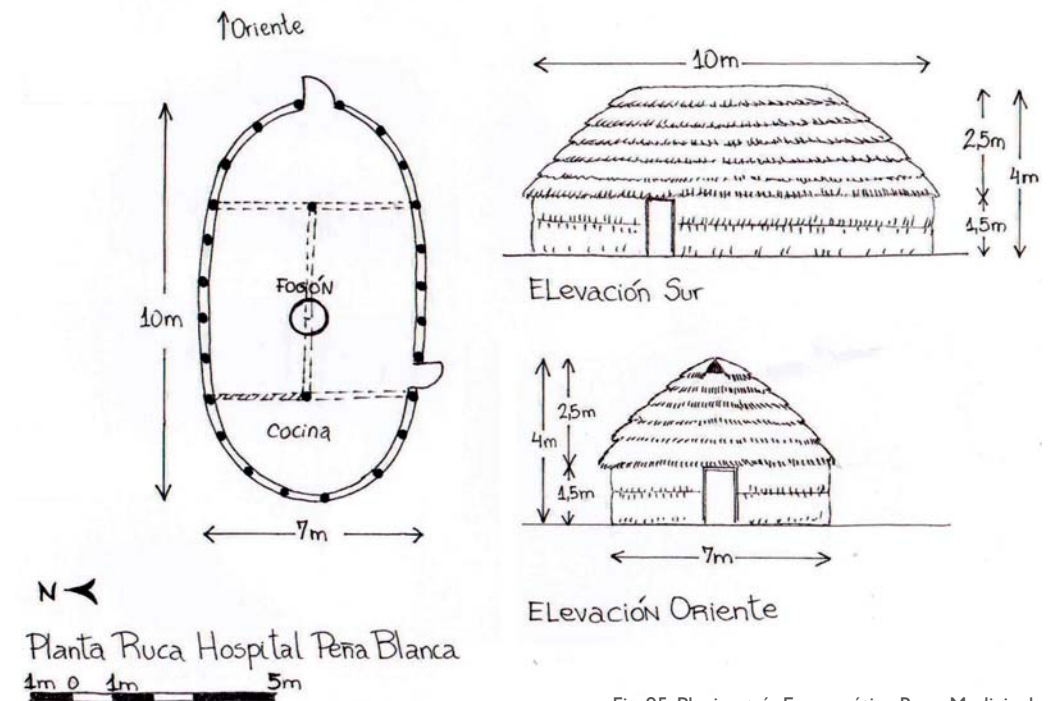 ↑Oriente
10m
FOGÓN
Cocina
7m
N
Planta Ruca Hospital Peña Blanca
1m 0 1m 5m
10m
2,5m
4m
1,5m
ELevación Sur
2,5m
4m
1,5m
7m
ELevación Oriente